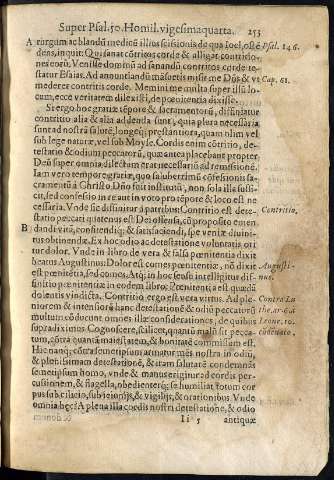 Super Psal. 50. Homil. vigesimaquarta. 253
A rurgum ac blandū medicū illius scissionis de qua Ioel, ostē Psal. 146.
dens, inquit: Qui sanat cōtritos corde & alligat contritio-
nes eorū. Venisse dominū ad sanandū cōtritos corde te-
statur Esaias. Ad annuntiandū māsuetis misit me Dñs & vt Cap. 61.
mederer contritis corde. Memini me multa super illū lo-
cum, ecce veritatem dilexisti, de pœnitentia dixisse.
Stergo hoc gratæ tēpore & sacramentorū, distinguatur
contritio alia & alia addenda sunt, quia plena necessaria
sunt ad nostrā salutē, longeq; præstantiora, quam olim vel
sub lege naturæ, vel sub Moyse. Cordis enim cōtritio, de-
testatio & odium peccatorū, quæ antea placebant propter
Deū super omnia dilectum erat necessaria ad remissionē.
Iam vero tempore gratiæ, quo saluberrimū cōfessionis sa-
cramentū a Christo Dño fuit institutū, non sola illa suffi-
cit, sed confessio in re aut in voto pro tēpore & loco est ne-
cessaria. Vnde sic diffinitur à patribus: Contritio est dete- Contritio.
statio peccati quatenus est Dei offensa, cū proposito emen-
B dandi vitā, confitendiq; & satisfaciendi, spe veniæ diuini-
tus obtinendæ. Ex hoc odio ac detestatione voluntatis ori
tur dolor. Vnde in libro de vera & falsa pœnitentia dixit
beatus Augustinus: Dolor est comes pœnitentiæ, nō dixit Augusti-
est pœnitētia, sed comes. Atq; in hoc sensu intelligitur dif- nus.
finitio pœnitentiæ in eodem libro: Pœnitentia est quædā
dolentis vindicta. Contritiō ergo est vera virtus. Ad ple- Contra Lu
niorem & intensiorē hanc detestationē & odiū peccatorū the. ar. 6. a
multum cōducunt omnes illæ considerationes, de quibus Leone. 10.
supra diximus: Cognoscere, scilicet, quantū malū sit pecca-
tum, cōtra quantā maiestatem, & bonitatē commissum est.
Hic nanq; cōtra semetipsum armatur mēs nostra in odiū,
& plenissimam detestationē, & itam salutarē condemnās
semetipsum homo, vnde & manus erigitur ad cordis per-
cussionem, & flagella, obedienterq; se humiliat totum cor
pus sub cilicio, sub ieiunijs, & vigilijs, & orationibus. Vnde
omnia hęc? A plena illa cordis nostri detestatione, & odio
Ii 5 antiquæ